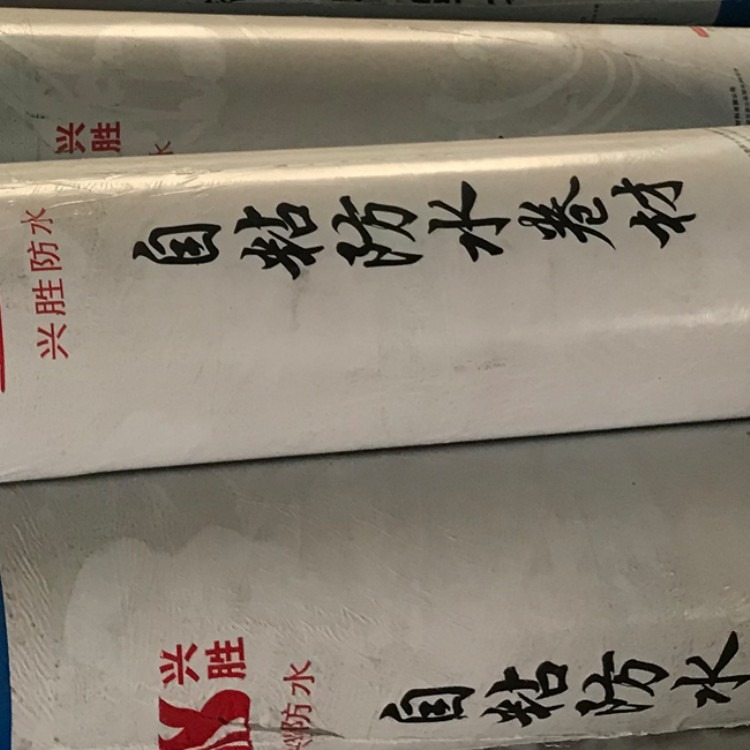 兴胜
水
兴胜防水
自粘防水卷材
兴胜
防水
自粘防水